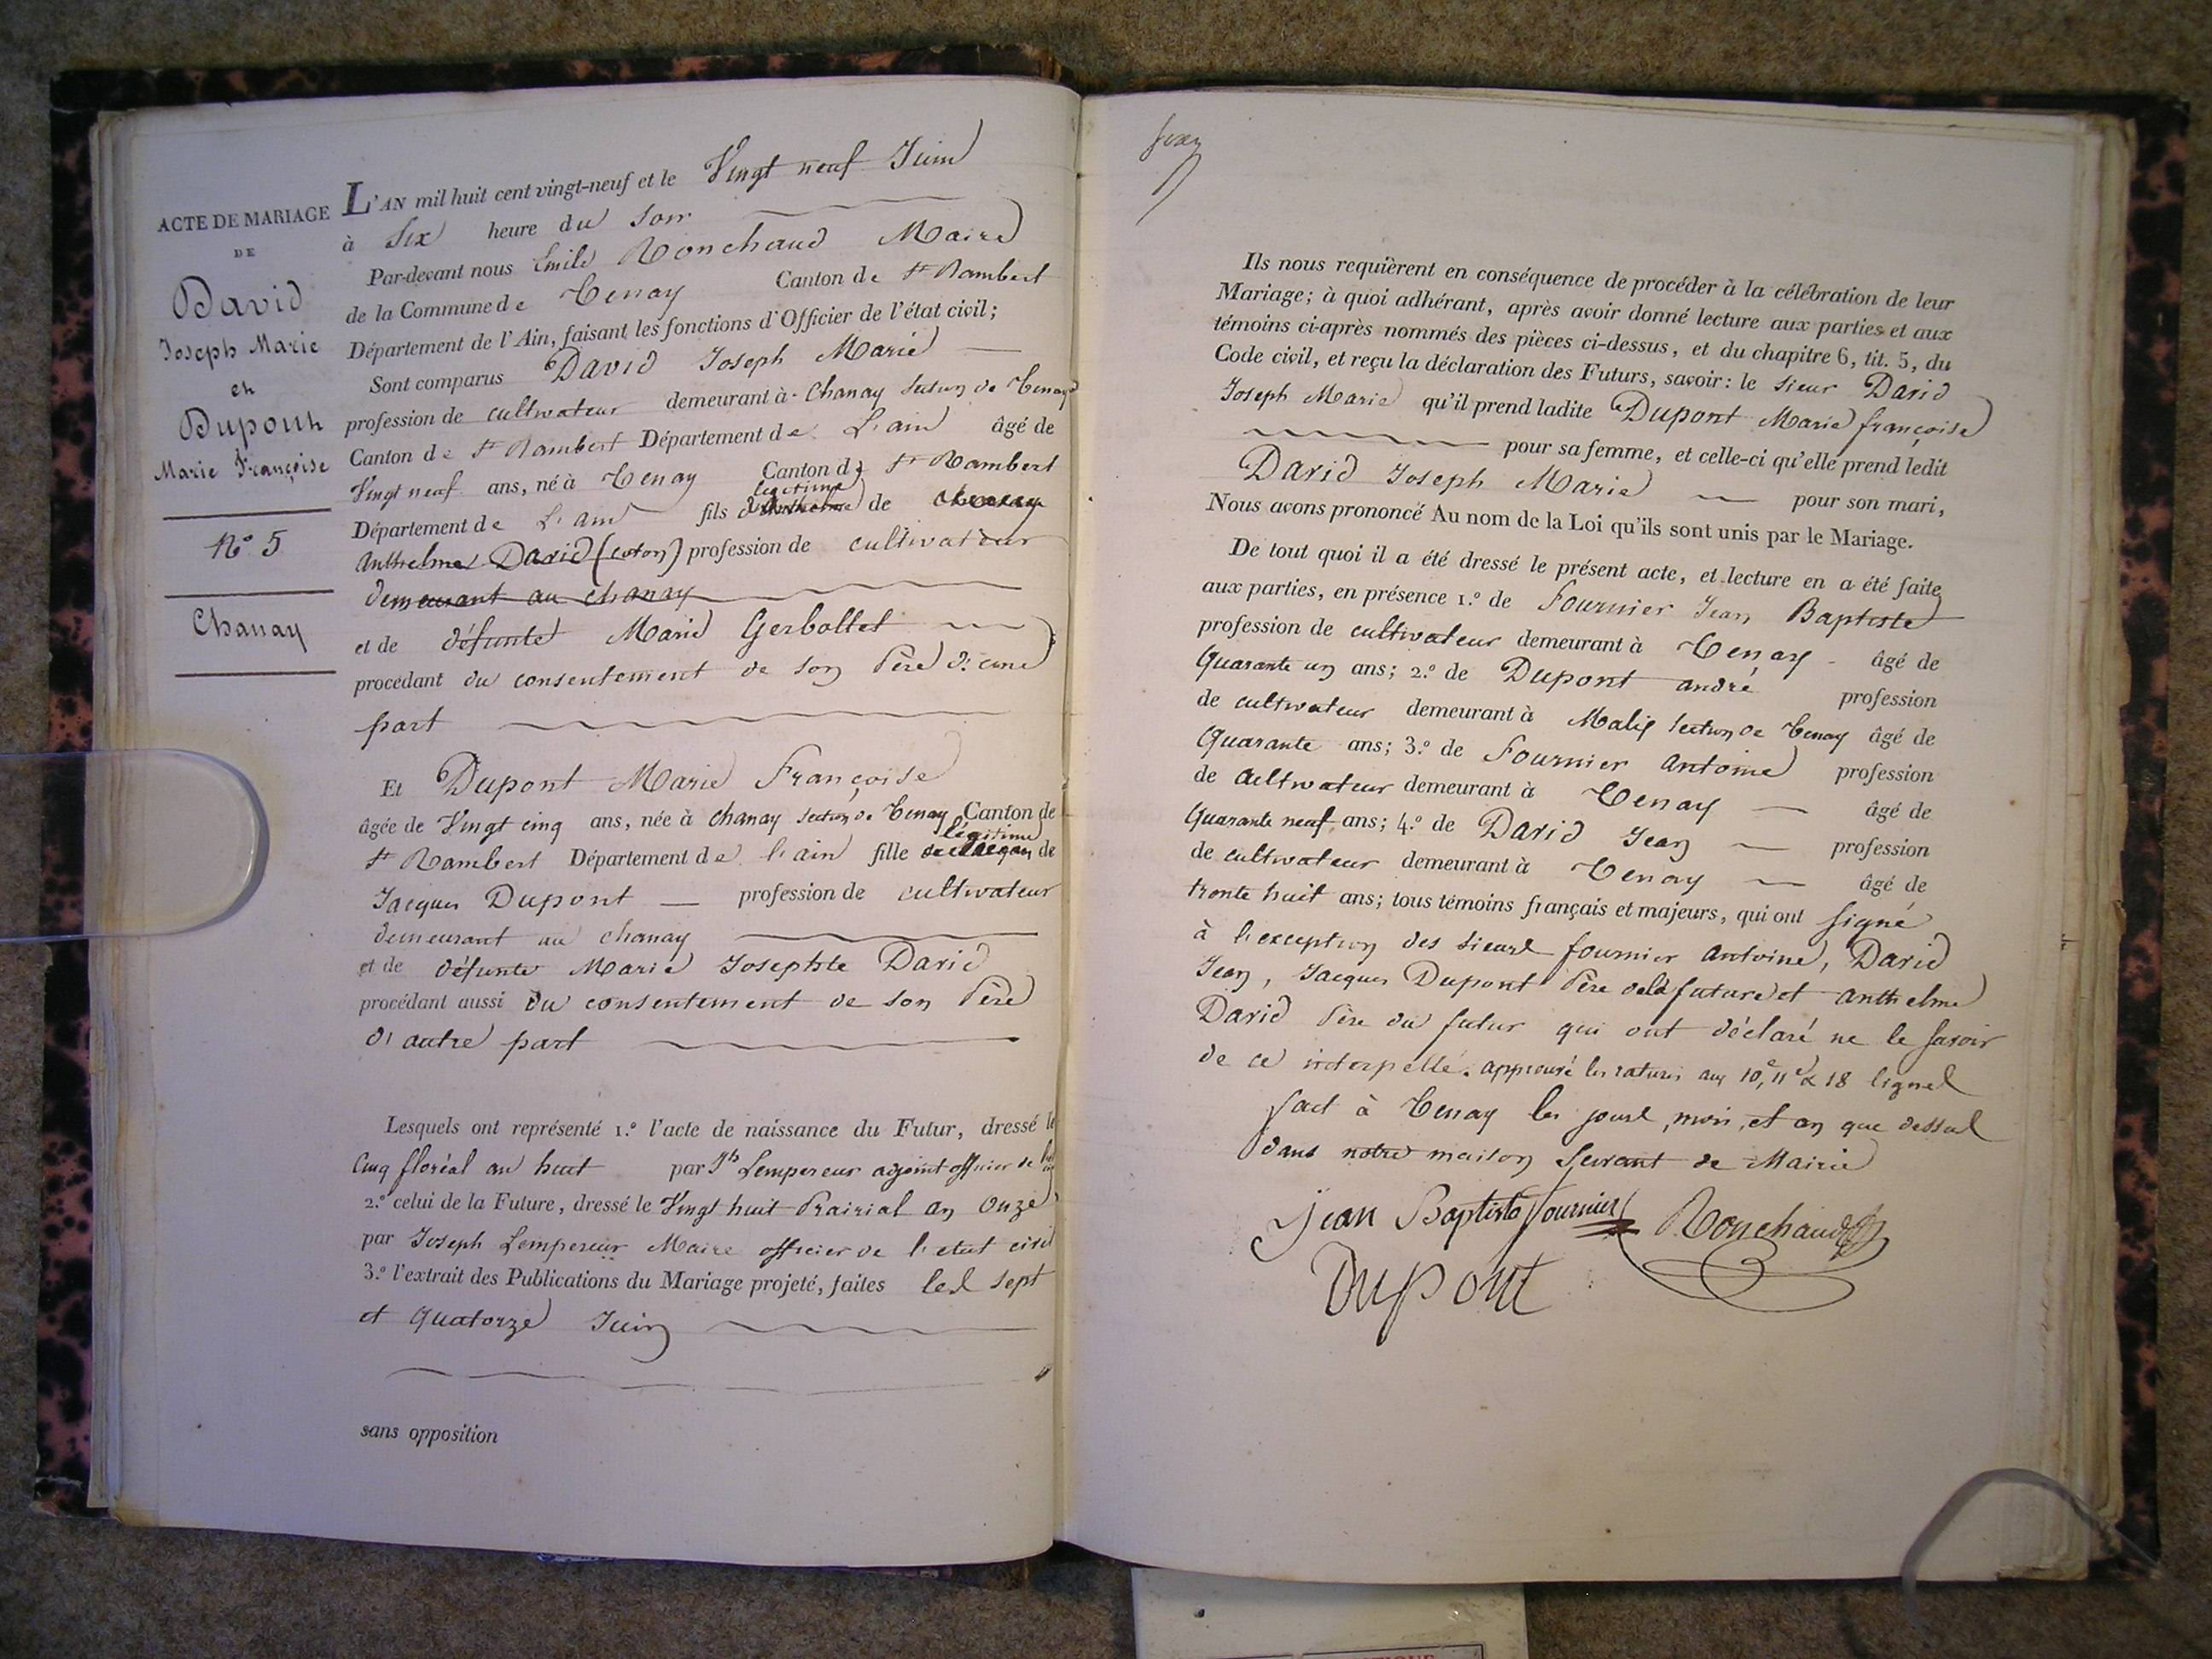 ACTE DE MARIAGE
DE
David
Joseph Marie
et
Dupont
Marie Françoise
N° 5
Chanay
L'AN mil huit cent vingt-neuf et le Vingt neuf Juin
à Six heure du Soir
Par-devant nous Emile Ronchaud Maire
de la Commune de Tenay Canton de St Rambert
Département de l'Ain, faisant les fonctions d'Officier de l'état civil;
Sont comparus David Joseph Marie
profession de cultivateur demeurant à Chanay section de Tenay
Canton de St Rambert Département de L'ain âgé de
Vingt neuf ans, né à Tenay Canton de St Rambert
légitime
Département de L'ain fils de
Anthelme David (coton) profession de cultivateur
demeurant au chanay
et de défunte Marie Gerbollet
procédant du consentement de son Père d'une
part
Et Dupont Marie Françoise
âgée de Vingt cinq ans, née à chanay section de Tenay Canton de
légitime
St Rambert Département de l'ain fille de
Jacques Dupont profession de cultivateur
demeurant au chanay
et de défunte Marie Josephte David
procédant aussi du consentement de son Père
d'autre part
Lesquels ont représenté 1.° l'acte de naissance du Futur, dressé le
Cinq floréal an huit par Jh Lempereur adjoint officier de
2.° celui de la Future, dressé le Vingt huit Prairial an Onze
par Joseph Lempereur Maire officier de l'état civil
3.° l'extrait des Publications du Mariage projeté, faites les sept
et Quatorze Juin
sans opposition
Ils nous requièrent en conséquence de procéder à la célébration de leur
Mariage; à quoi adhérant, après avoir donné lecture aux parties et aux
témoins ci-après nommés des pièces ci-dessus, et du chapitre 6, tit. 5, du
Code civil, et reçu la déclaration des Futurs, savoir: le sieur David
Joseph Marie qu'il prend ladite Dupont Marie françoise
pour sa femme, et celle-ci qu'elle prend ledit
David Joseph Marie pour son mari,
Nous avons prononcé Au nom de la Loi qu'ils sont unis par le Mariage.
De tout quoi il a été dressé le présent acte, et lecture en a été faite
aux parties, en présence 1.° de Fournier Jean Baptiste
profession de cultivateur demeurant à Tenay âgé de
Quarante un ans; 2.° de Dupont andré profession
de cultivateur demeurant à Malix section de Tenay âgé de
Quarante ans; 3.° de Fournier Antoine profession
de cultivateur demeurant à Tenay âgé de
Quarante neuf ans; 4.° de David Jean profession
de cultivateur demeurant à Tenay âgé de
trente huit ans; tous témoins français et majeurs, qui ont signé
à l'exception des sieurs fournier Antoine, David
Jean, Jacques Dupont Père de la future et anthelme
David Père du futur qui ont déclaré ne le savoir
de ce interpellé. approuvé les ratures aux 10e, 11e & 18 lignes
fait à Tenay les jours, mois, et an que dessus
dans notre maison servant de Mairie
Jean Baptiste fournier Ronchaud
Dupont